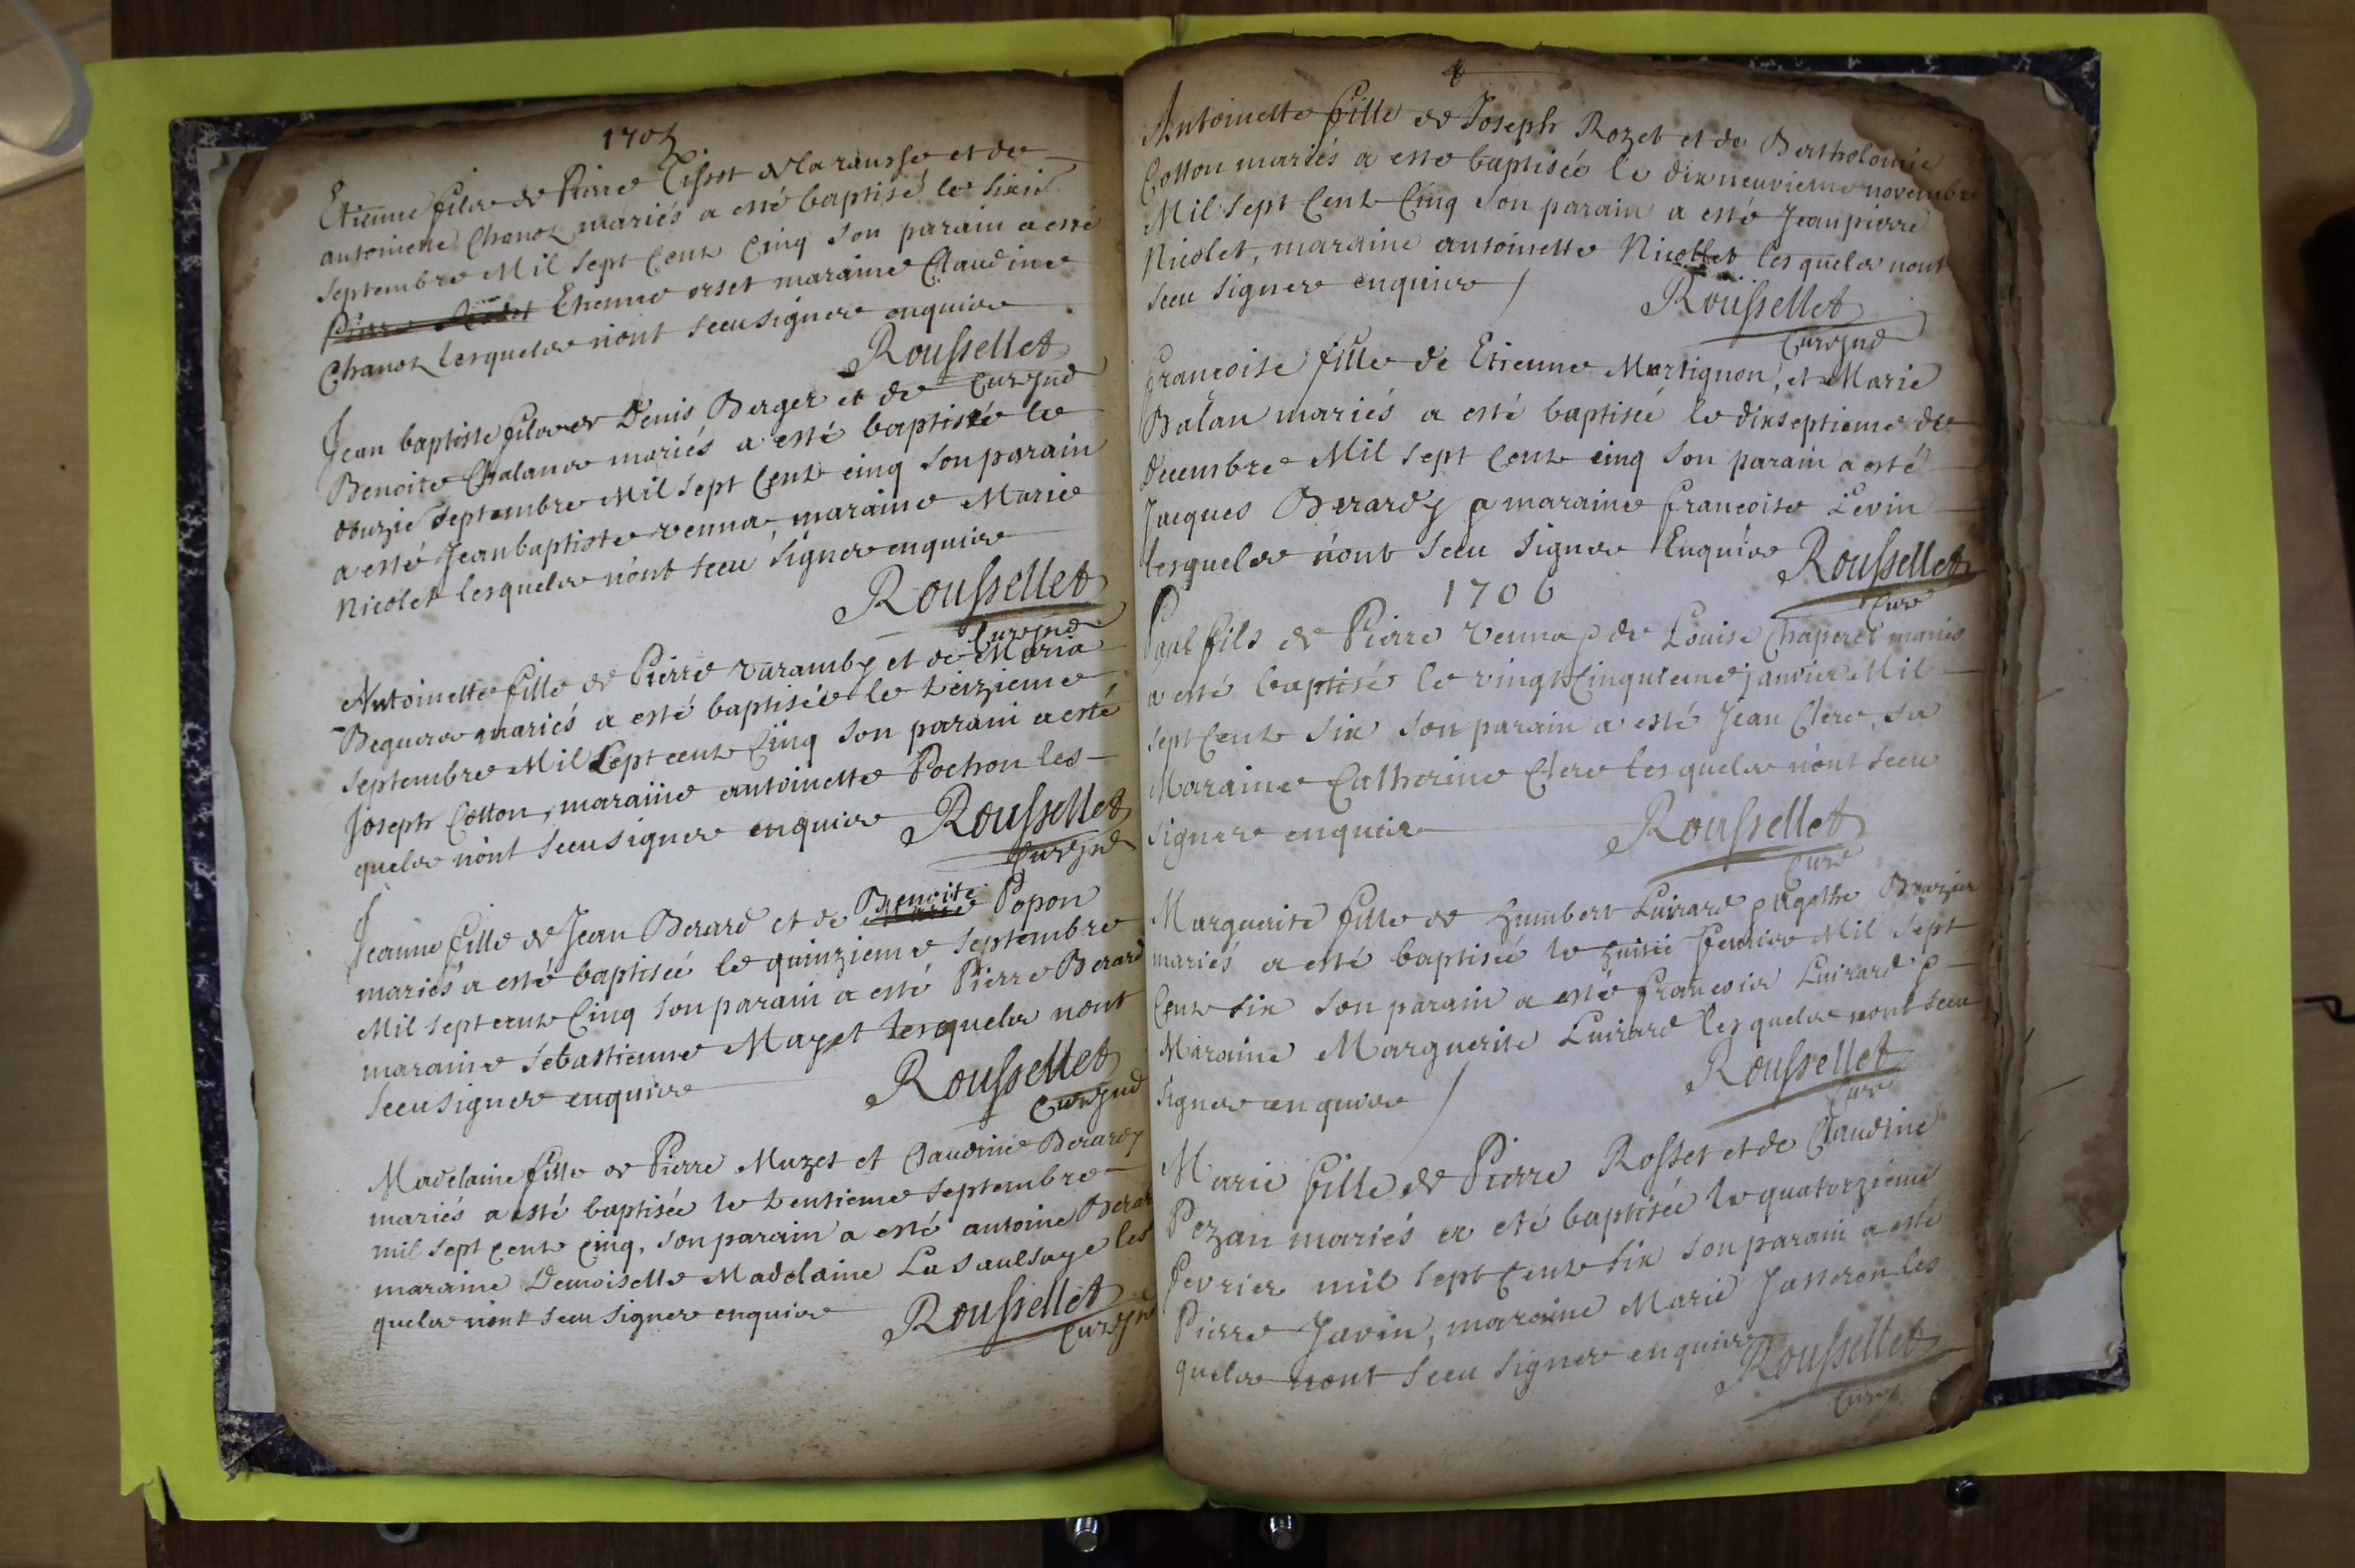 1705
Etienne filz de Pierre Tissot de la ransse et de
antoinette Chanoz mariés a esté baptisé le sixié
septembre Mil sept Cent Cinq son parain a esté
Etienne orset maraine Claudine
Chanoz lesquelz n'ont sceu signer enquire
Roussellet
Curé
Jean baptiste filz de Denis Berger et de
Benoite Chalande mariés a esté baptisé le
onzié septembre Mil sept Cent cinq son parain
a esté Jean baptiste venna maraine Marie
Nicolet lesquelz n'ont sceu signer enquire
Roussellet
Curé
Antoinette fille de Pierre varamby et de Maria
mariés a esté baptisée le treizieme
septembre Mil sept cent Cinq son parain a esté
Joseph Cotton, maraine antoinette Pochon les-
quelz n'ont sceu signer enquire Roussellet
Curé
Jeanne fille de Jean Berard et de Benoite Popon
mariés a esté baptisée le quinzieme septembre
Mil sept cent Cinq son parain a esté Pierre Berard
maraine sebastienne Mayet lesquelz nont
sceu signer enquire Roussellet
Curé
Madelaine fille de Pierre Muzet et Claudine Berardy
mariés a esté baptisée le trentieme septembre
mil sept cent cinq, son parain a esté antoine Berar
maraine Demoiselle Madelaine La Saulsaye les
quelz n'ont sceu signer enquire Roussellet
Curé
Antoinette fille de Joseph Rozet et de Bertholomie
Cotton mariés a esté baptisée le dixneuvieme novembre
Mil sept Cent Cinq son parain a esté Jean pierre
Nicolet, maraine antoinette Nicollet lesquelz nont
sceu signer enquire /
Roussellet
Curé
francoise fille de Etienne Martignon, et Marie
Balan mariés a esté baptisée le dixseptieme de
decembre Mil sept Cent cinq son parain a esté
Jacques Berardy & maraine francoise Levin
lesquelz n'ont sceu signer Enquire Roussellet
Curé
1706
Paul fils de Pierre venna & de Louise Chaperet mariés
a esté baptisé le vingt Cinquieme janvier Mil
sept Cent six son parain a esté Jean Clerc, sa
Maraine Catherine Clerc lesquelz n'ont sceu
signer enquire
Roussellet
Curé
Marguerite fille de humbert Luirard & Agathe
mariés a esté baptisée le huitié fevrier Mil sept
Cent six son parain a esté francois Luirard &
Maraine Marguerite Luirard lesquelz nont sceu
signer enquire /
Roussellet
Curé
Marie fille de Pierre Rosset et de Claudine
Pozan mariés a eté baptisée le quatorzieme
fevrier mil sept Cent six son parain a esté
Pierre Javin, maraine Marie Jasseron les
quelz nont sceu signer enquire Roussellet
Curé